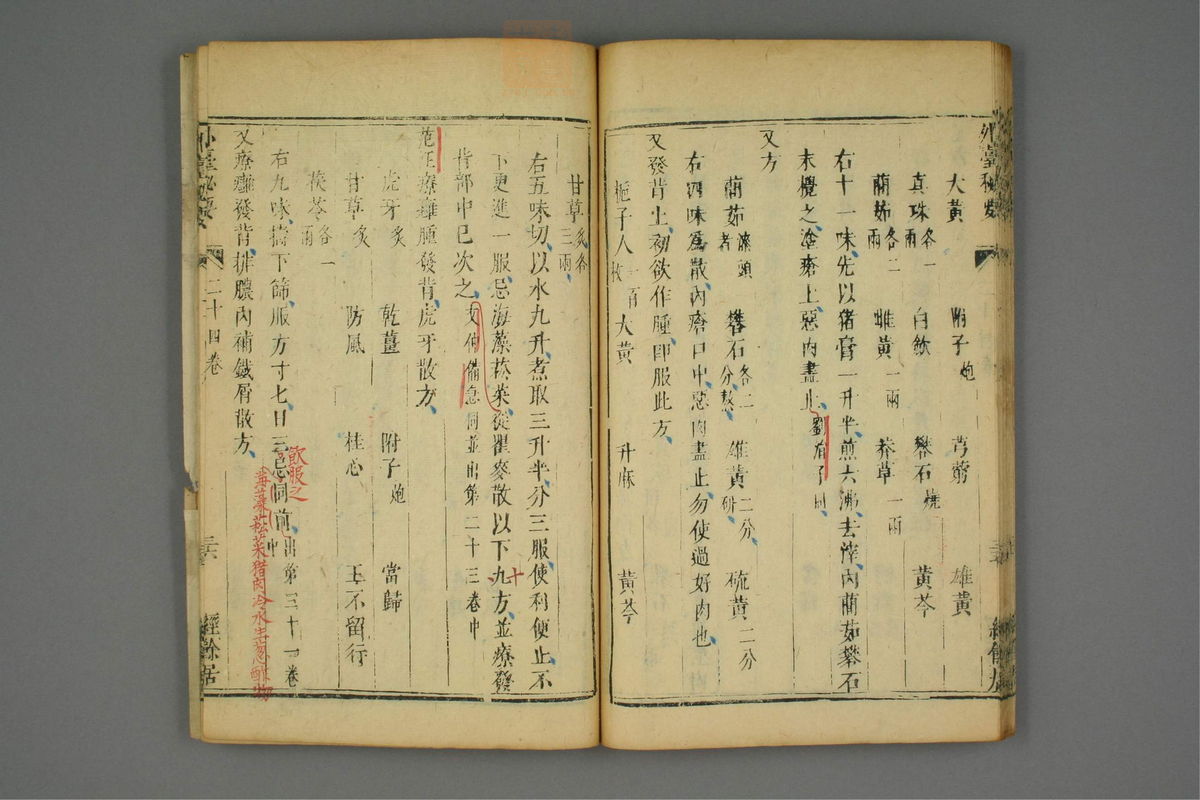 外臺秘要
大黃 附子炮 芎藭 雄黃
真珠各一兩 白斂 礬石燒 黃芩
䕡茹各二兩 雌黃一兩 莽草一兩
右十一味先以猪膏一升半煎六沸去滓內䕡茹礬石
末攪之塗瘡上惡肉盡止劉涓子同
又方
䕡茹漆頭者 礬石各二分熬 雄黃二分研 硫黃二分
右四味為散內瘡口中惡肉盡止勿使過好肉也
又發背上初欲作腫即服此方
梔子人一百枚 大黃 升麻 黃芩
甘草三兩炙各
右五味切以水九升煮取三升半分三服使利便止不
下更進一服忌海藻菘菜從瞿麥散以下九方並療發
十
背部中已次之文仲備急同並出第二十三卷中
范汪療癰腫發背虎牙散方
虎牙炙 乾薑 附子炮 當歸
甘草炙 防風 桂心 王不留行
茯苓各一兩
右九味擣下篩服方寸七日三忌同前出第三十一卷中
飲服之
海藻菘菜猪肉冷水生葱酢物
又療癰發背排膿內補鐵屑散方
外臺秘要 二十四卷 三六 經餘居